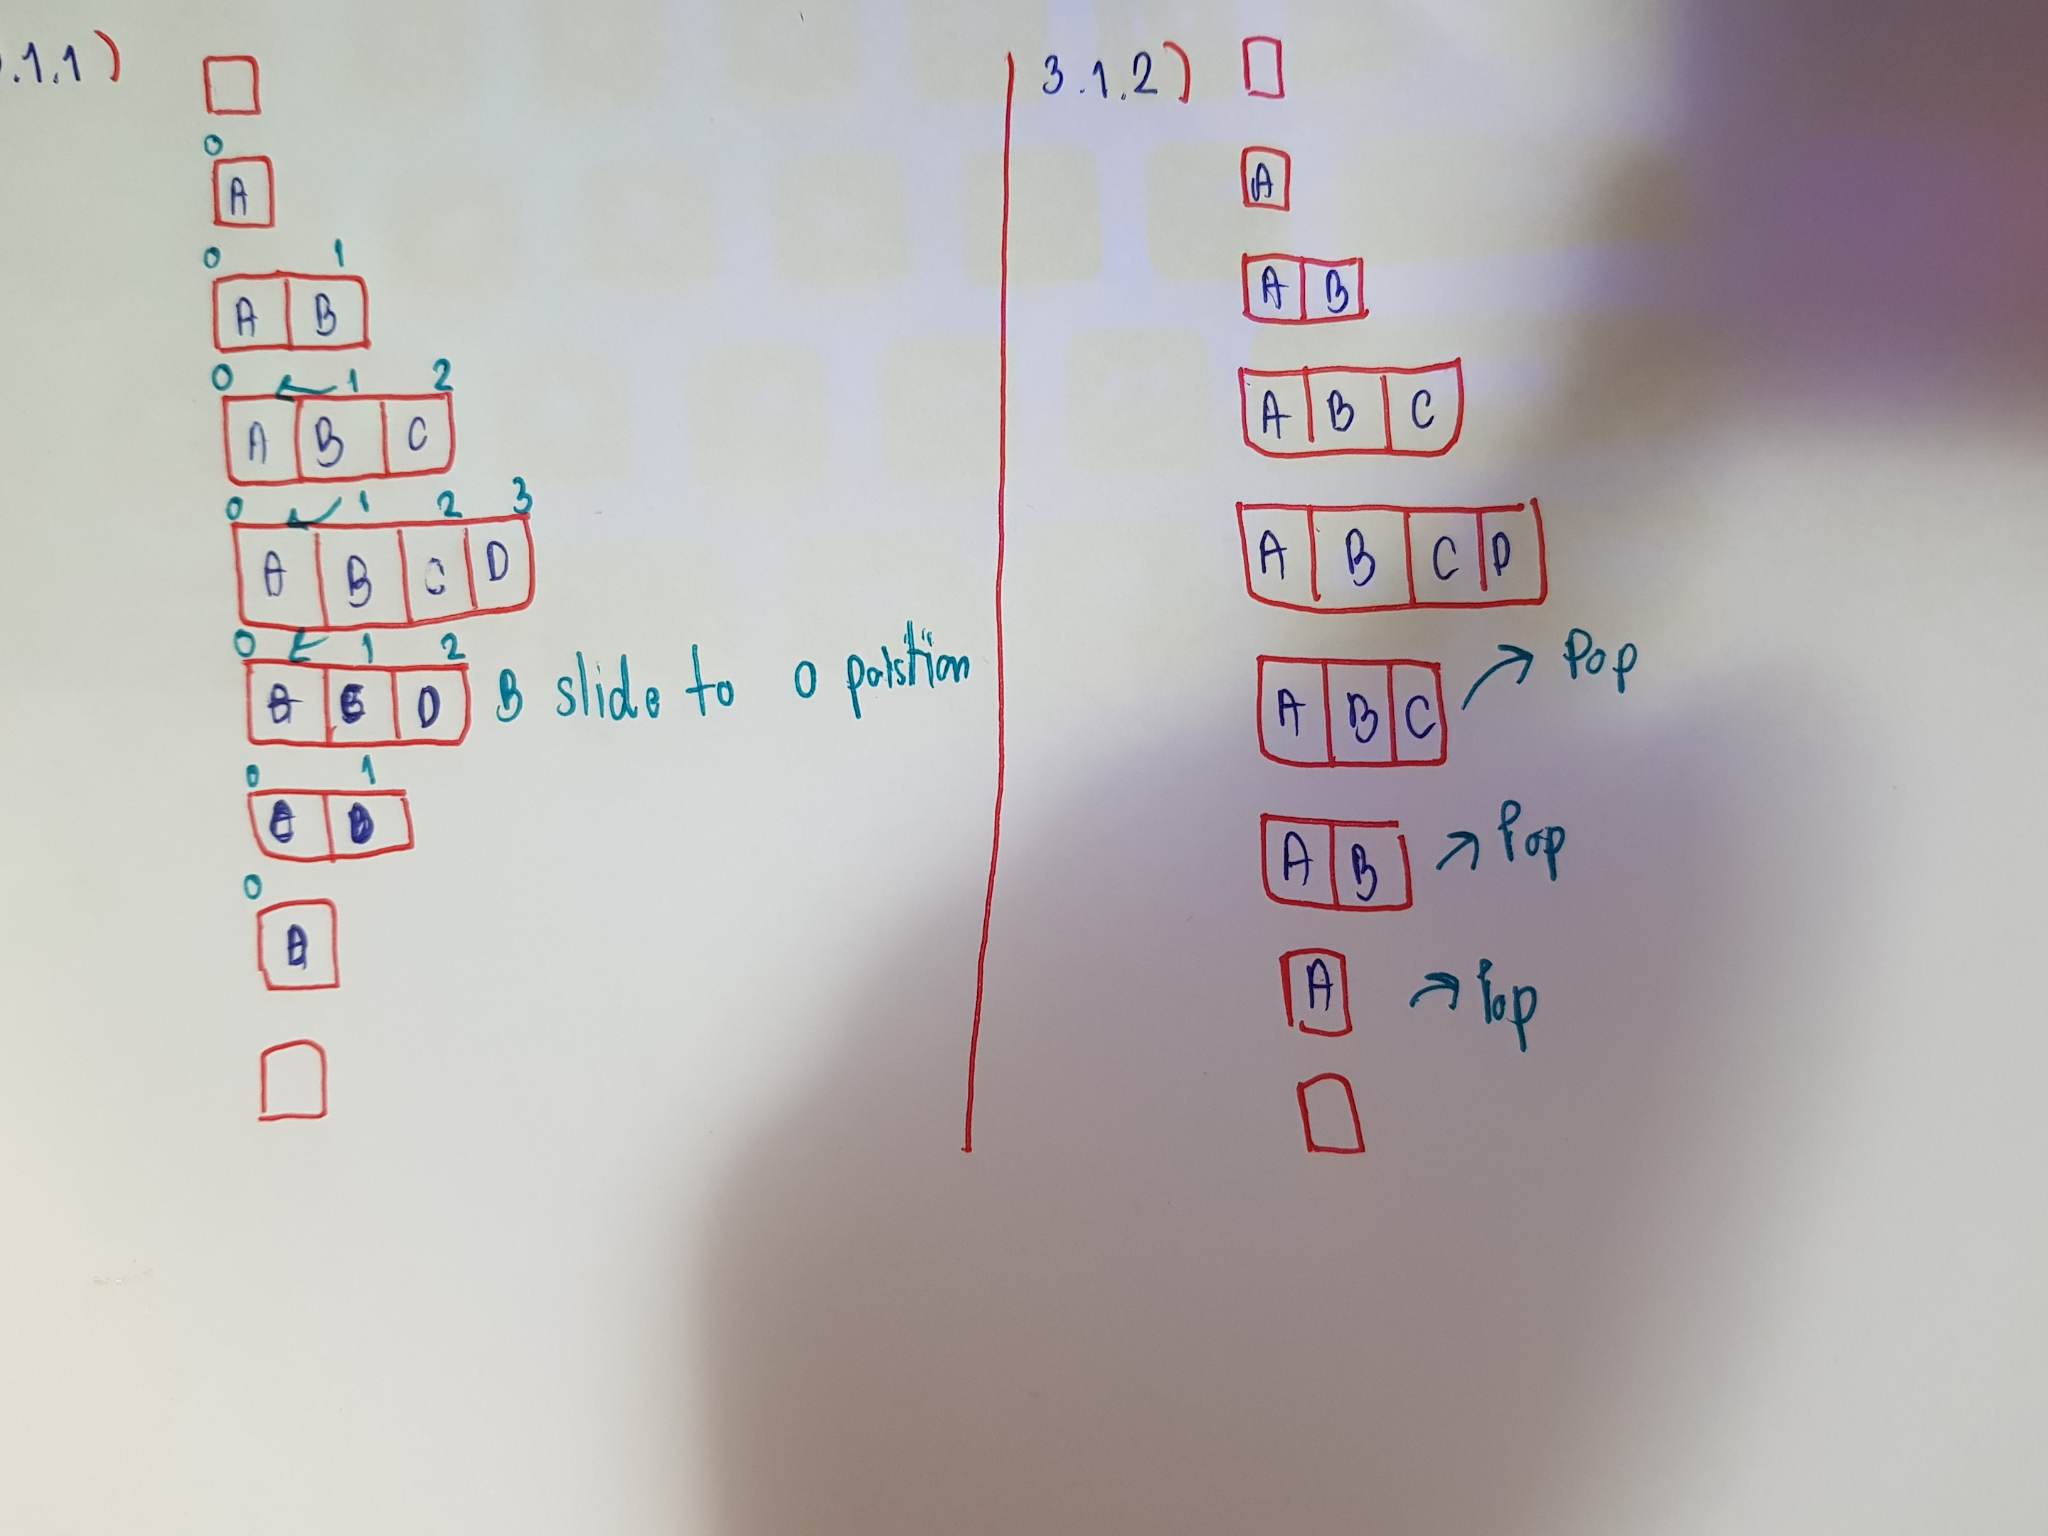 .1.1)
0
A
0 1
A B
0 1 2
A B C
0 1 2 3
A B C D
0 1 2
D B slide to 0 poistion
0 1
0
3.1.2)
A
A B
A B C
A B C D
A B C Pop
A B Pop
A Pop